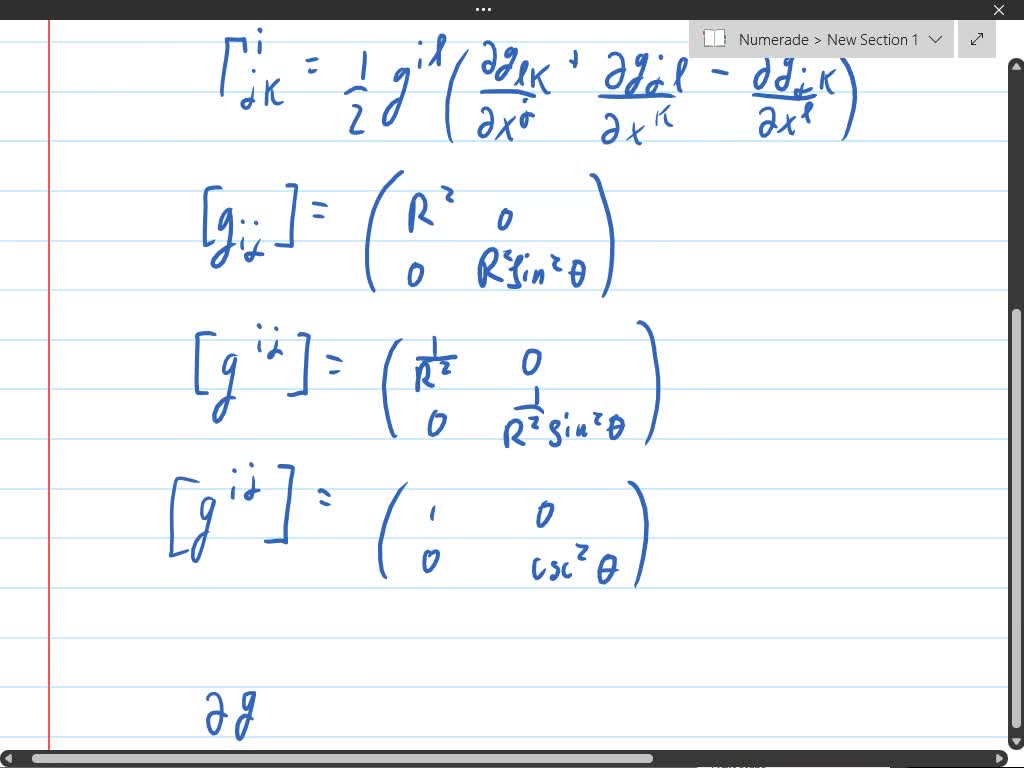 Numerade > New Section 1
Γ^i_{jK} = 1/2 g^{il} (∂g_{lK}/∂x^j + ∂g_{jl}/∂x^K − ∂g_{jK}/∂x^l)
[g_{ij}] = (R² 0
0 R²sin²θ)
[g^{ij}] = (1/R² 0
0 1/R²sin²θ)
[g^{ij}] = (1 0
0 csc²θ)
∂g